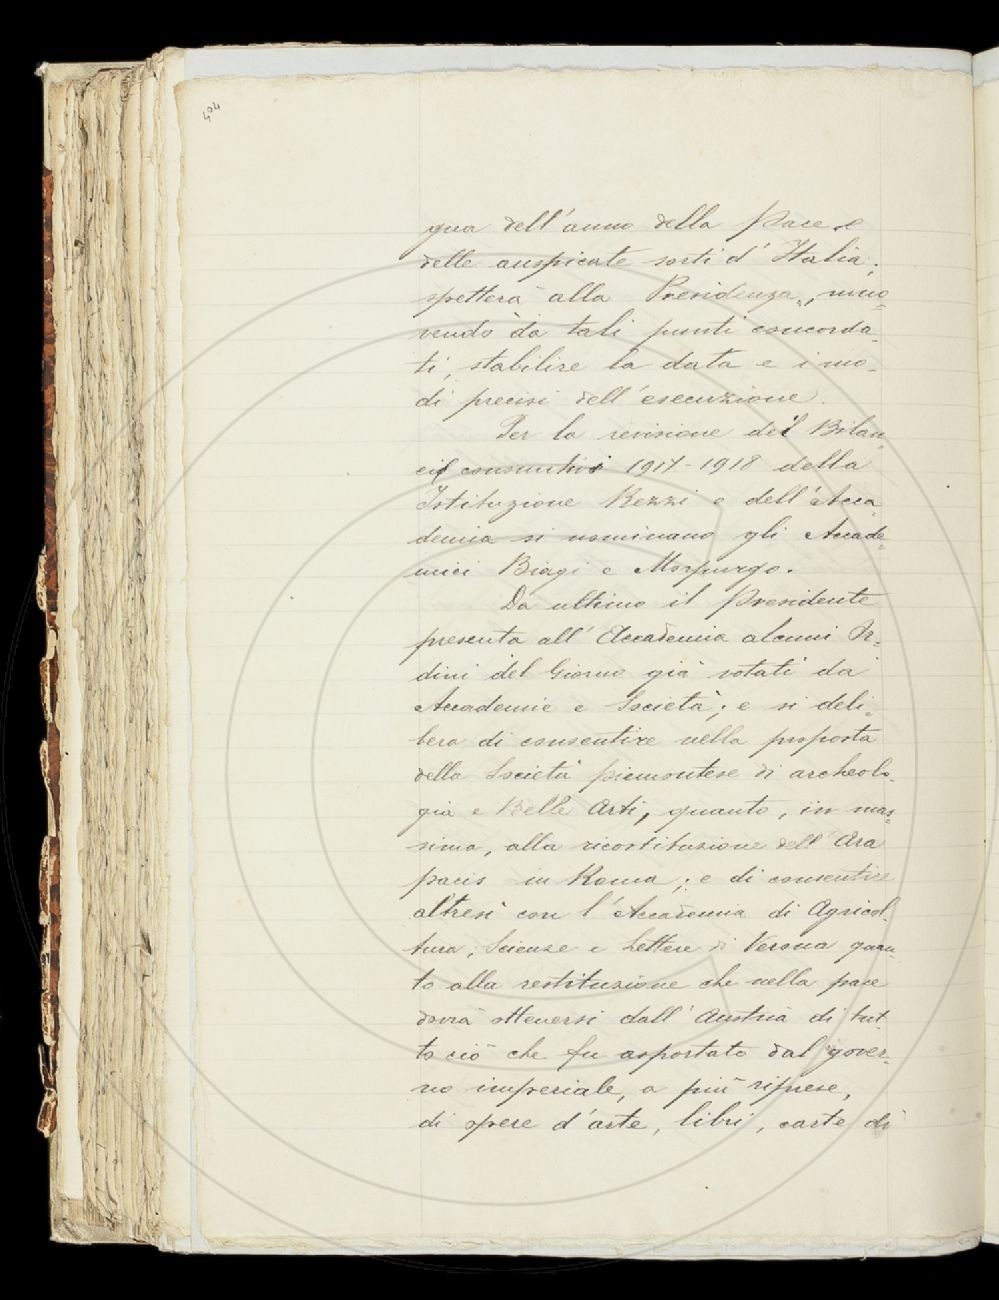 404
gna dell'anno della Pace e
delle auspicate sorti d'Italia;
spetterà alla Presidenza, muo=
vendo da tali punti concorda-
ti, stabilire la data e i mo-
di precisi dell'esecuzione.
Per la revisione del Bilan=
cio consuntivo 1917-1918 della
Istituzione Rezzi e dell'Acca=
demia si nominano gli Accade=
mici Biagi e Morpurgo.
Da ultimo il Presidente
presenta all'Accademia alcuni Or=
dini del Giorno già votati da
Accademie e Società; e si deli=
bera di consentire nella proposta
della Società piemontese di archeolo-
gia e Belle Arti, quanto, in mas=
sima, alla ricostituzione dell'Ara
pacis in Roma; e di consentire
altresì con l'Accademia di Agricol-
tura, Scienze e Lettere di Verona quan-
to alla restituzione che nella pace
dovrà ottenersi dall'Austria di tut-
to ciò che fu asportato dal gover-
no imperiale, a più riprese,
di opere d'arte, libri, carte di